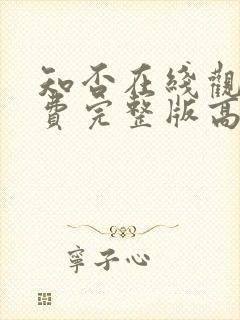 知否在线觀
費完整版高
寧子心